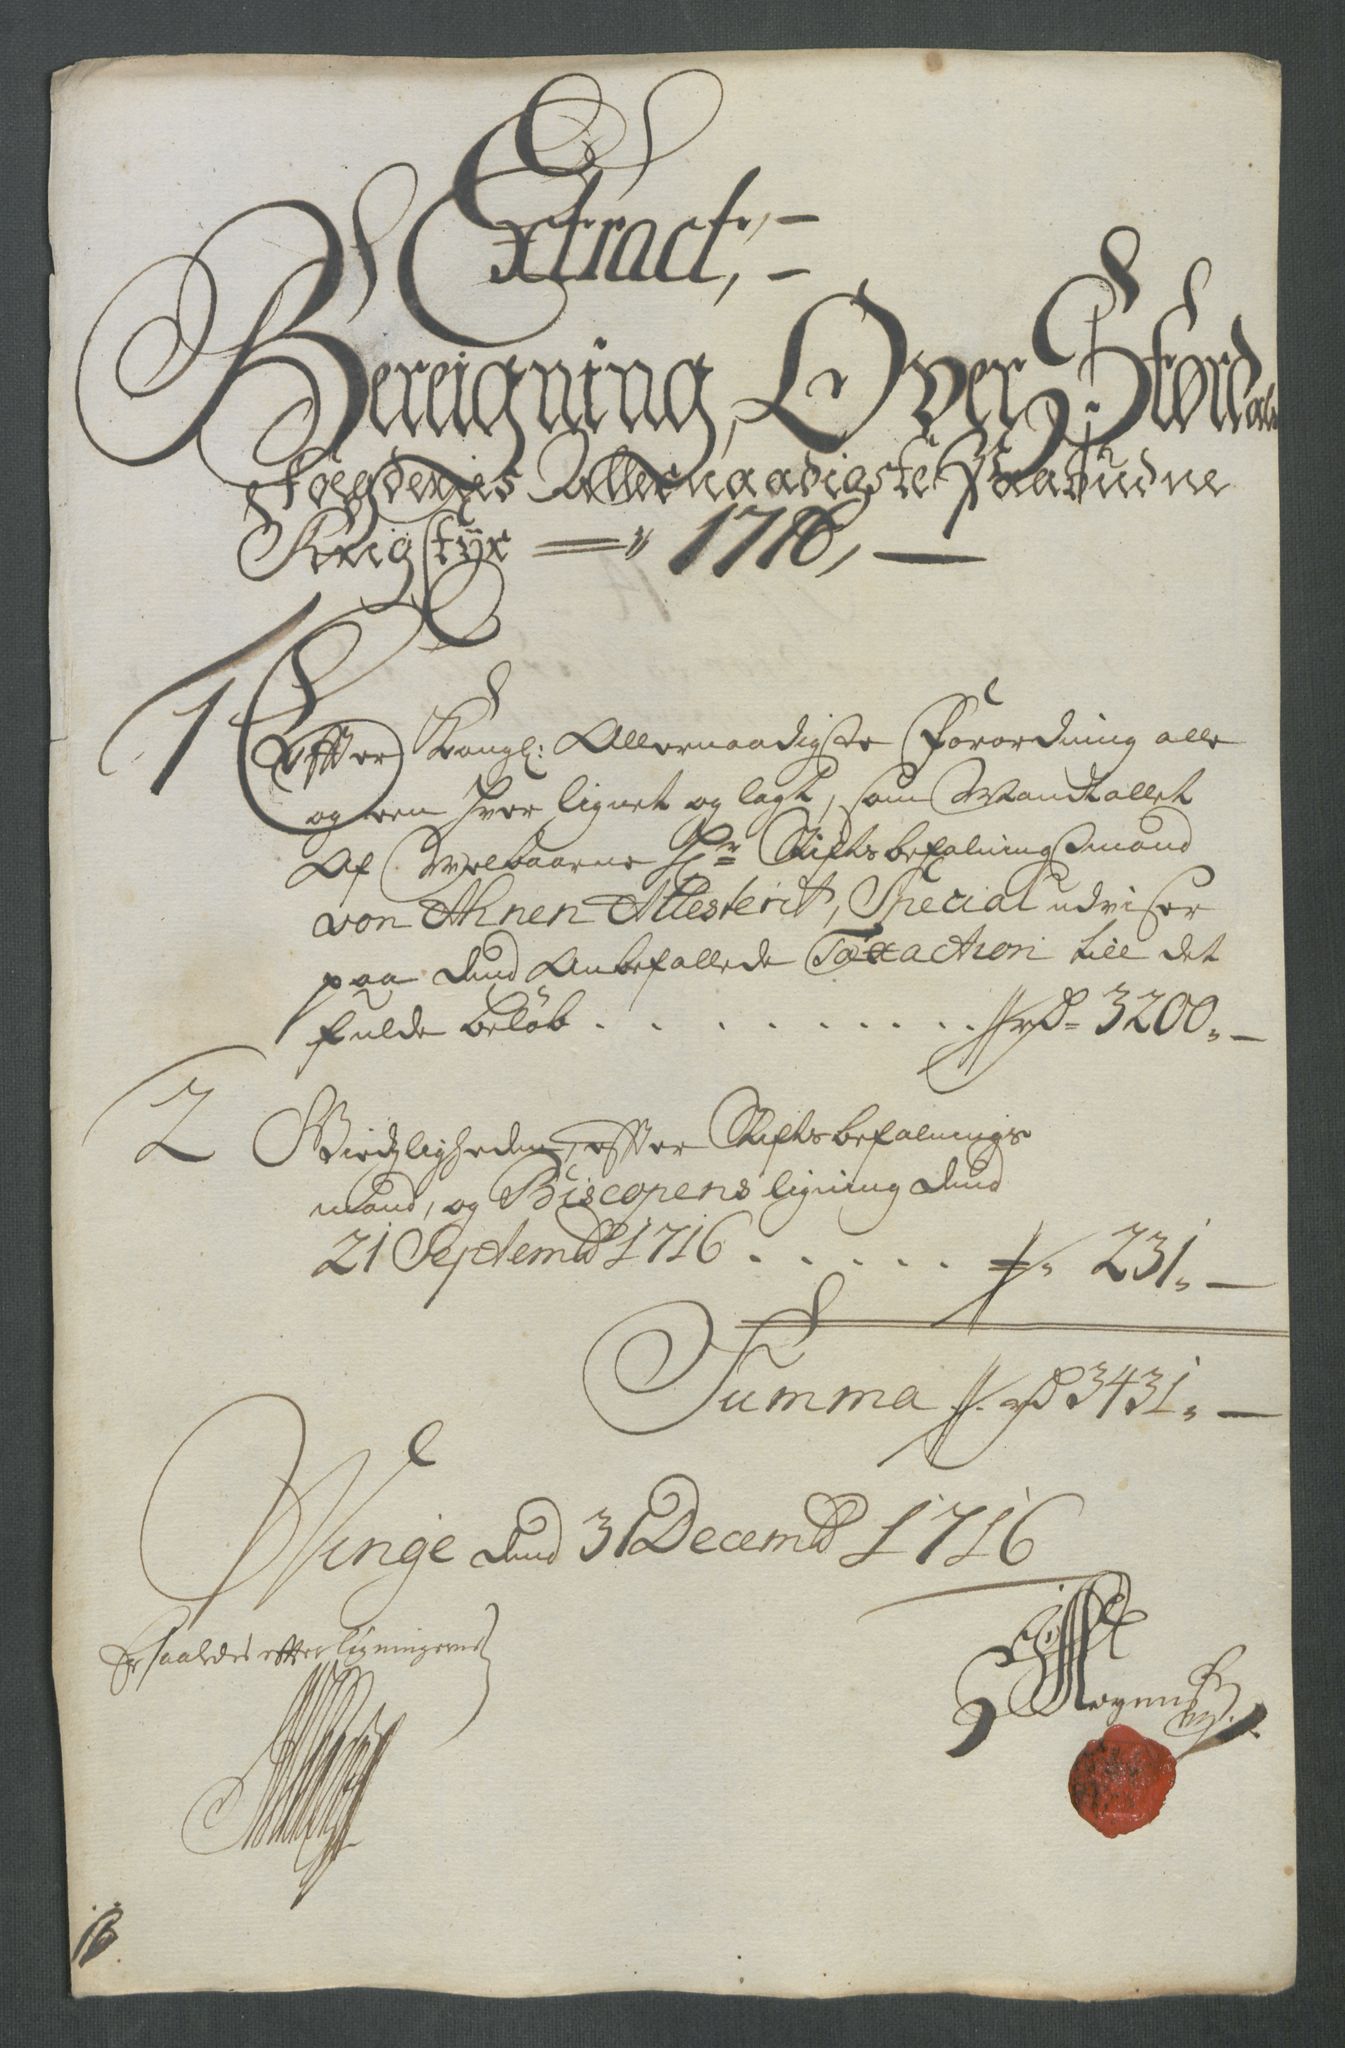 Extract,,—
Bereigning, Over Størdals
Foegderjes Allernaadigste Paabudne
Krigstÿr =" 1716,—
1 Effter Kongl: Allernaadigste Forordning alle
og een hver lignet og lagt, som Mandtallet
Af Welbaarne Hr Stiftsbefalningsmand
von Ahnen Attesterit, Special udviser
paa dend Anbefallede Taxaction till det
fulde beløb . . . . . . . . . . rd- 3200,,—
2 Giestligheden, effter Stiftsbefalnings
mand, og Biscopens ligning dend
21 Septembr 1716 . . . . . 231,,—
Summa rd 3431,,—
Winge dend 31 Decembr 1716
Er saaledes effter ligningerne